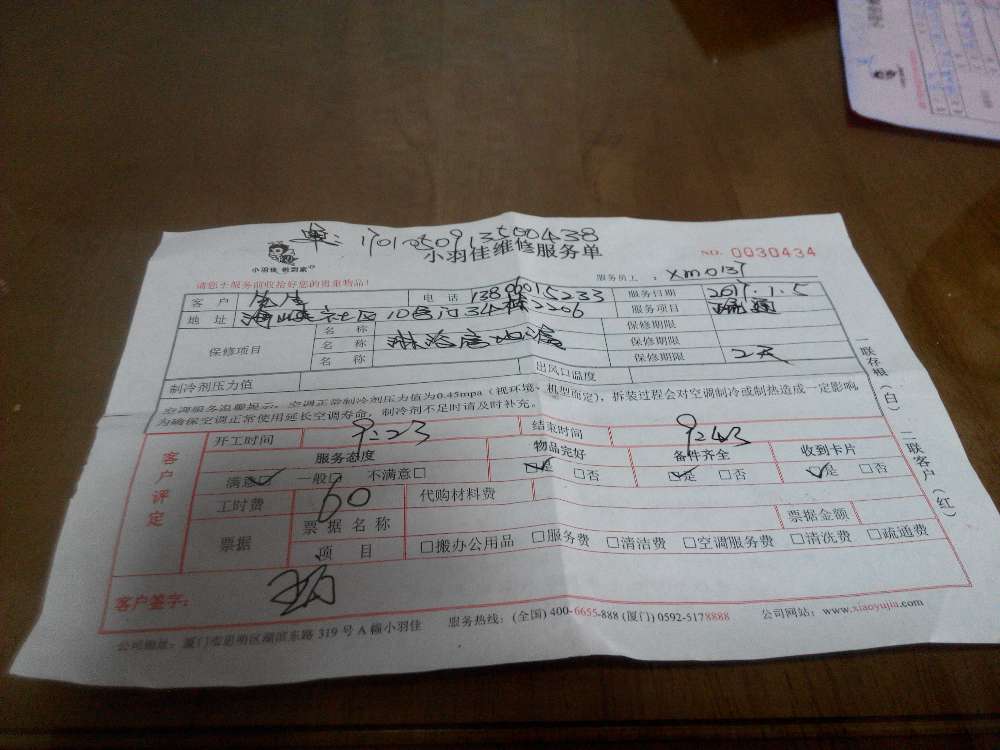 单: 1701050913500438
小羽佳维修服务单
NO. 0030434
小羽佳 帮到家
请您于服务前收拾好您的贵重物品! 服务员工: XM0137
客户 电话 13806015233 服务日期 2017.1.5
地址 海峡社区 34栋2206 服务项目 疏通
保修项目 名称 保修期限
名称 淋浴房地漏 保修期限
名称 保修期限 2天
制冷剂压力值 出风口温度
空调服务温馨提示:空调正常制冷剂压力值为0.45mpa(视环境、机型而定),拆装过程会对空调制冷或制热造成一定影响
为确保空调正常使用延长空调寿命,制冷剂不足时请及时补充。
一联存根(白) 二联客户(红)
客户评定
开工时间 9:23 结束时间 9:43
服务态度 物品完好 备件齐全 收到卡片
满意☑ 一般□ 不满意□ ☑是 □否 ☑是 □否 ☑是 □否
工时费 60 代购材料费
票据 票据名称 票据金额
项目 □搬办公用品 □服务费 □清洁费 □空调服务费 □清洗费 □疏通费
客户签字:
公司地址:厦门市思明区湖滨东路319号A幢小羽佳 服务热线:(全国)400-6655-888(厦门)0592-5178888 公司网站:www.xiaoyujia.com